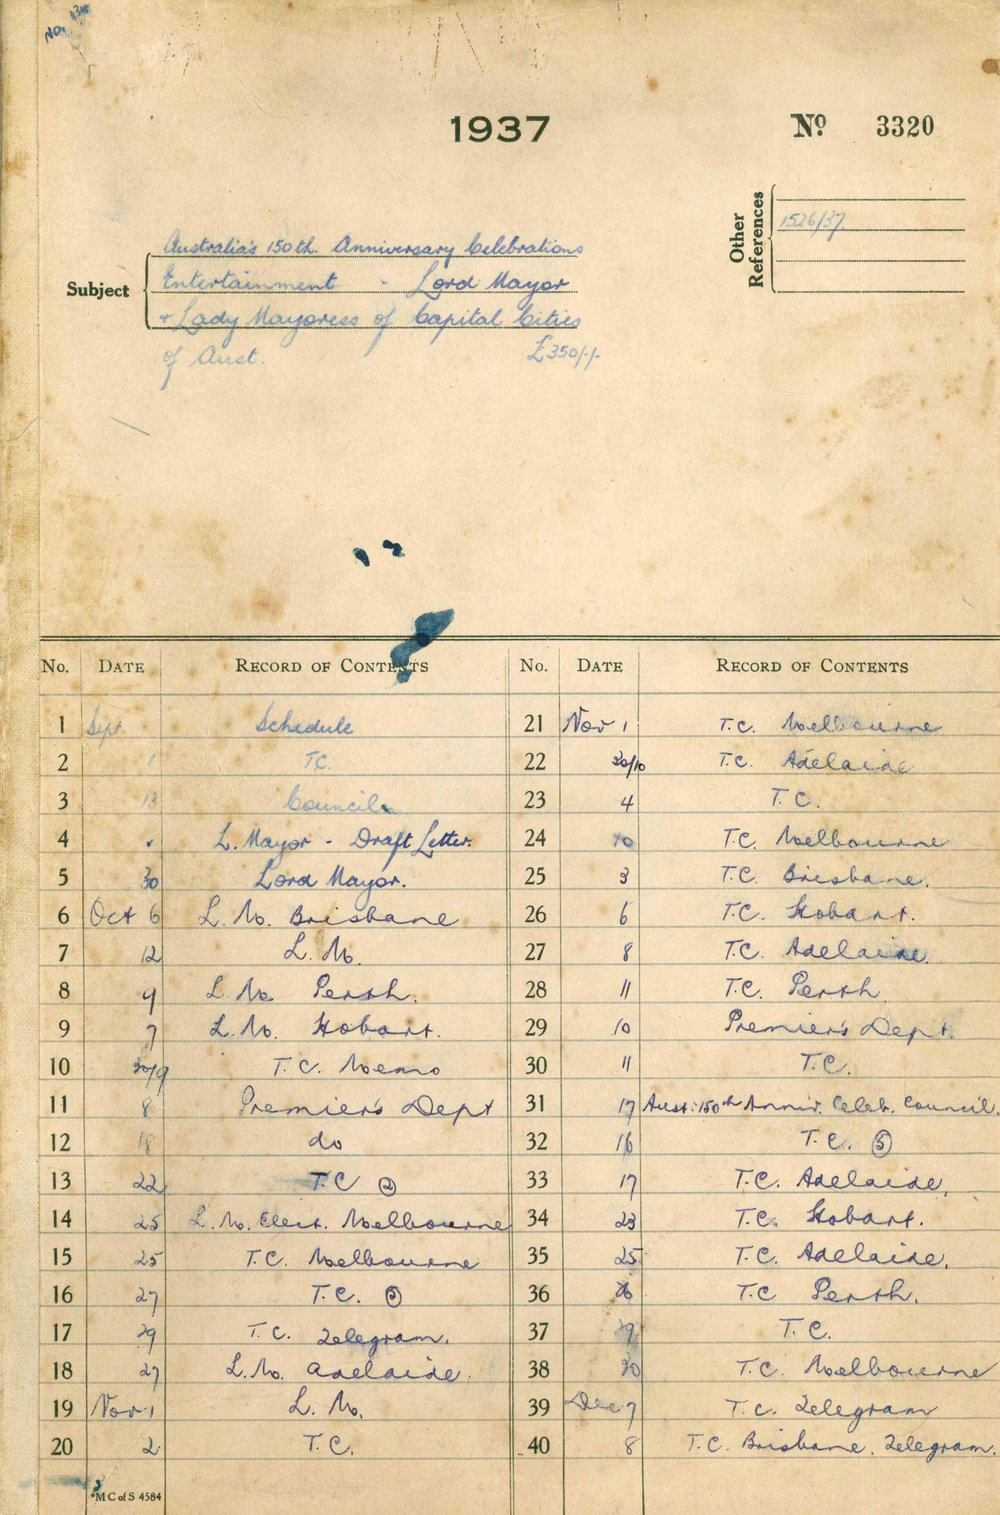 1937
Nº 3320
Other References
1526/37
Subject
Australia's 150th Anniversary Celebrations
Entertainment - Lord Mayor
+ Lady Mayoress of Capital Cities
of Aust. £350/-/-
No. DATE RECORD OF CONTENTS No. DATE RECORD OF CONTENTS
1 Sept. Schedule 21 Nov 1 T.C. Melbourne
2 1 T.C. 22 30/10 T.C. Adelaide
3 13 Council 23 4 T.C.
4 " L. Mayor - Draft Letter. 24 10 T.C. Melbourne
5 30 Lord Mayor. 25 3 T.C. Brisbane.
6 Oct 6 L. M. Brisbane 26 6 T.C. Hobart.
7 12 L. M. 27 8 T.C. Adelaide.
8 4 L. M. Perth. 28 11 T.C. Perth.
9 7 L. M. Hobart. 29 10 Premier's Dept.
10 30/9 T.C. Memo 30 11 T.C.
11 8 Premier's Dept 31 17 Aust: 150th Anniv. Celeb. Council.
12 18 do 32 16 T.C. ⑤
13 22 T.C ② 33 17 T.C. Adelaide.
14 25 L. M. Elect. Melbourne 34 23 T.C. Hobart.
15 25 T.C. Melbourne 35 25 T.C. Adelaide.
16 27 T.C. ⑤ 36 T.C Perth.
17 29 T.C. Telegram. 37 T.C.
18 27 L. M. Adelaide. 38 30 T.C. Melbourne
19 Nov 1 L. M. 39 Dec 7 T.C. Telegram
20 2 T.C. 40 8 T.C. Brisbane. Telegram.
*M C of S 4584